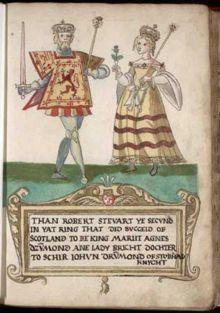 THAN ROBERT STEVART YE SECVND
IN YAT RING THAT DID SVCCEID OF
SCOTLAND TO BE KING MARIIT AGNES
DRVMOND ANE LADY BRICHT DOCHTER
TO SCHIR IOHVN DRVMOND OF STOBHAD
KNYCHT